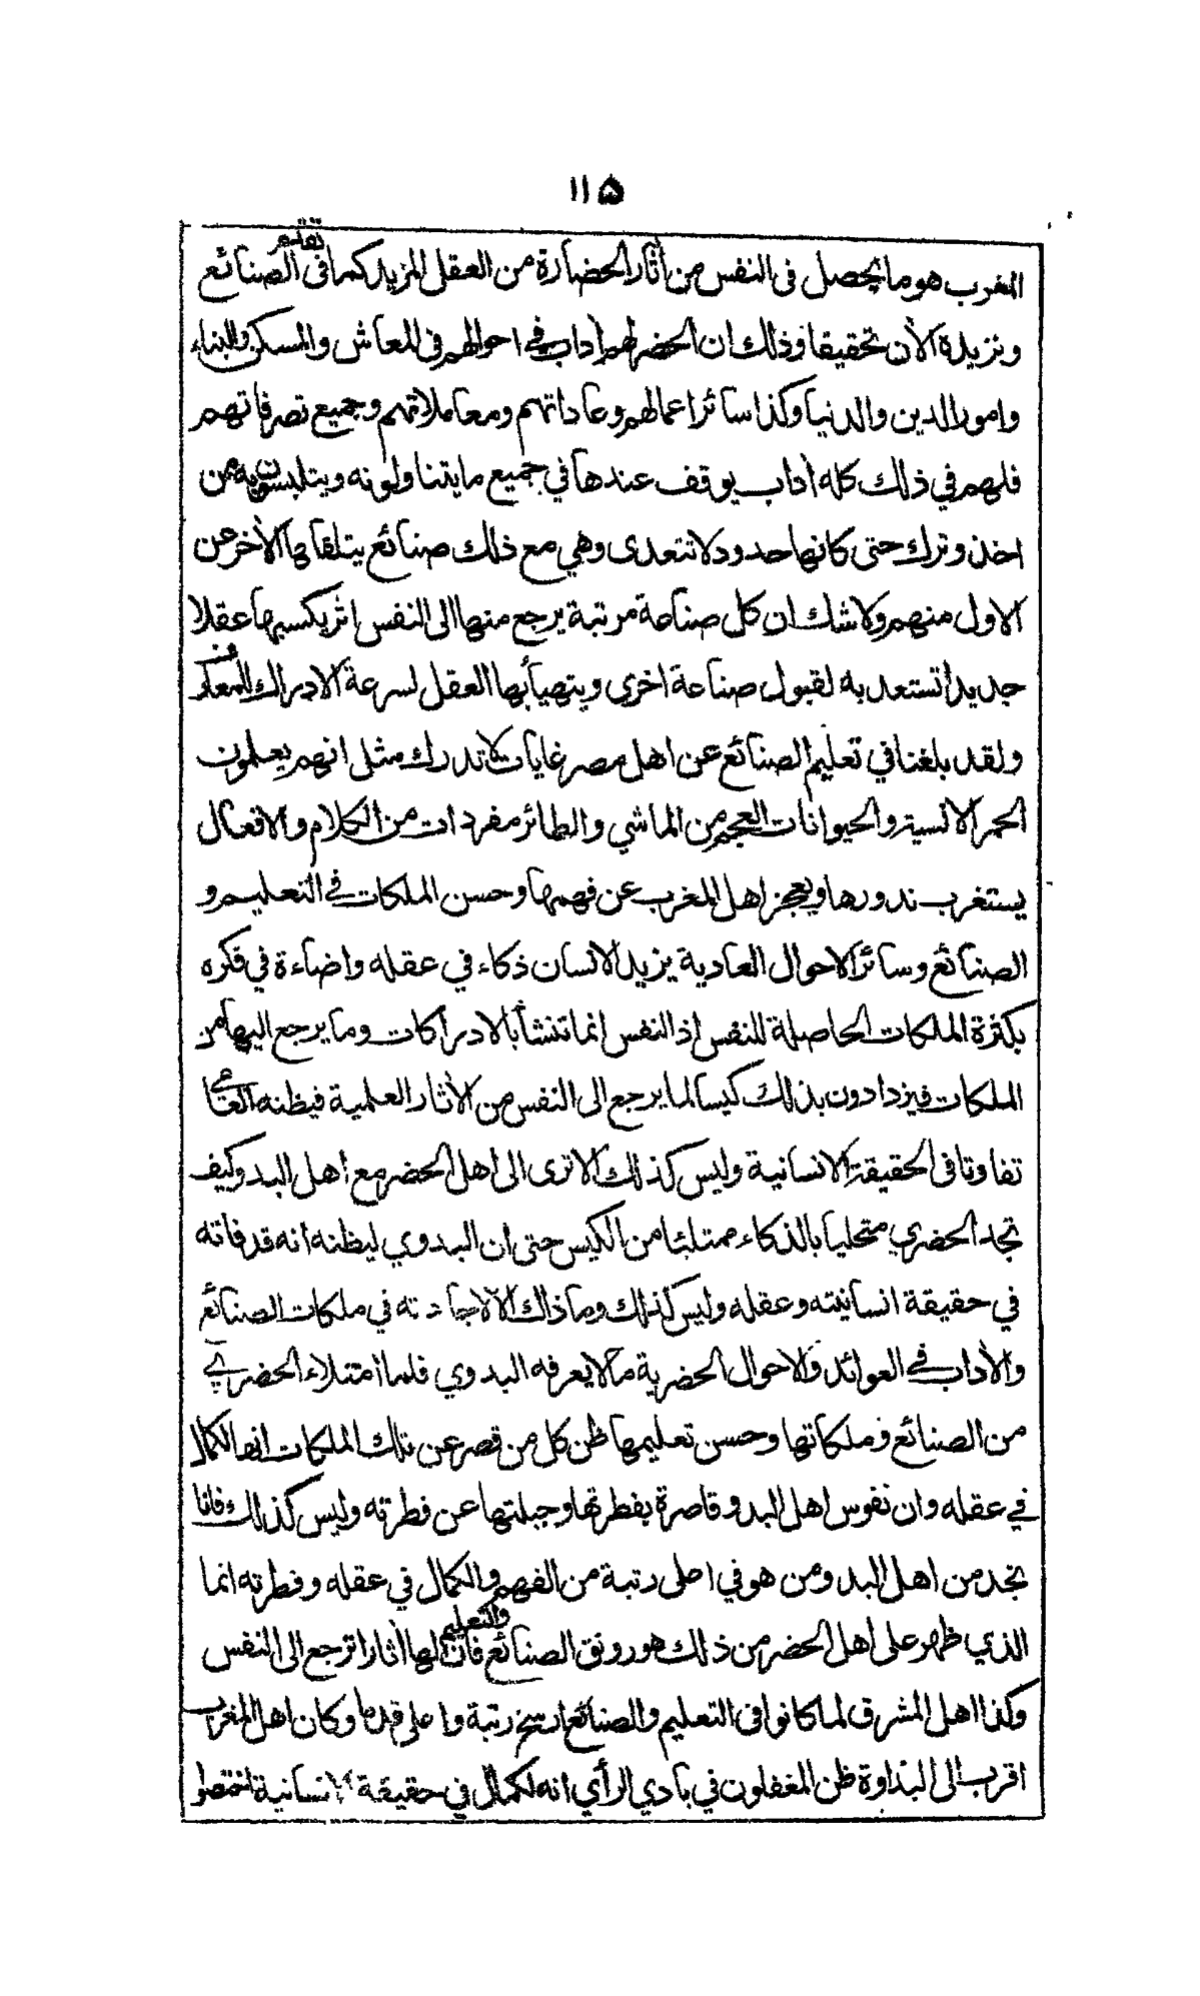 ١١٥
المغرب هو ما يحصل في النفس من أثار الحضارة من العقل المزيد كما تقدم في الصنائع
ونزيدة الأن تحقيقا وذلك ان الحضر لهم أداب في احوالهم في المعاش والمسكن والبناء
وامور الدين والدنيا وكذا سائر اعمالهم وعاداتهم ومعاملاتهم وجميع تصرفاتهم
فلهم في ذلك كله أداب يوقف عندها في جميع ما يتناولونه ويتلبسون به من
اخذ وترك حتى كانها حدود لا تتعدى وهي مع ذلك صنائع يتلقاها الأخر عن
الاول منهم ولا شك ان كل صناعة مرتبة يرجع منها الى النفس اثر يكسبها عقلا
جديدا تستعد به لقبول صناعة اخرى ويتهيأ بها العقل لسرعة الادراك للمعارف
ولقد بلغنا في تعليم الصنائع عن اهل مصر غايات لا تدرك مثل انهم يعلمون
الحمر الانسية والحيوانات العجم من الماشي والطائر مفردات من الكلام والافعال
يستغرب ندورها ويعجز اهل المغرب عن فهمها وحسن الملكات في التعليم و
الصنائع وسائر الاحوال العادية يزيد الانسان ذكاء في عقله واضاءة في فكره
بكثرة الملكات الحاصلة للنفس اذ النفس انما تنشأ بالادراكات وما يرجع اليها من
الملكات فيزدادون بذلك كيسا لما يرجع الى النفس من الأثار العلمية فيظنه العامي
تفاوتا في الحقيقة الانسانية وليس كذلك الا ترى الى اهل الحضر مع اهل البدو كيف
تجد الحضري متحليا بالذكاء ممتلئا من الكيس حتى ان البدوي ليظنه انه قد فاته
في حقيقة انسانيته وعقله وليس كذلك وما ذاك الا لاجادته في ملكات الصنائع
والأداب في العوائد والاحوال الحضرية ما لا يعرفه البدوي فلما امتلاء الحضري
من الصنائع وملكاتها وحسن تعليمها ظن كل من قصر عن تلك الملكات انها لكمال
في عقله وان نفوس اهل البدو قاصرة بفطرتها وجبلتها عن فطرته وليس كذلك فانا
نجد من اهل البدو من هو في اعلى رتبة من الفهم والكمال في عقله وفطرته انما
الذي ظهر على اهل الحضر من ذلك هو رونق الصنائع والتعليم فان لها أثارا ترجع الى النفس
وكذا اهل المشرق لما كانوا في التعليم والصنائع ارسخ رتبة واعلى قدما وكان اهل المغرب
اقرب الى البداوة ظن المغفلون في بادي الرأي انه لكمال في حقيقة الانسانية اختصوا